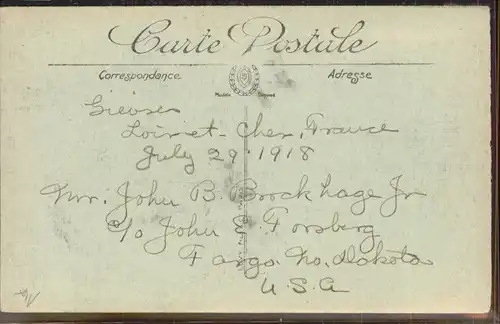 Carte Postale
Correspondance
Adresse
Modèle Déposé
Gievres
Loir-et-Cher, France
July 29-1918
Mr. John B. Brockhage Jr
c/o John E. Forsberg
Fargo. No. Dakota
U.S.A